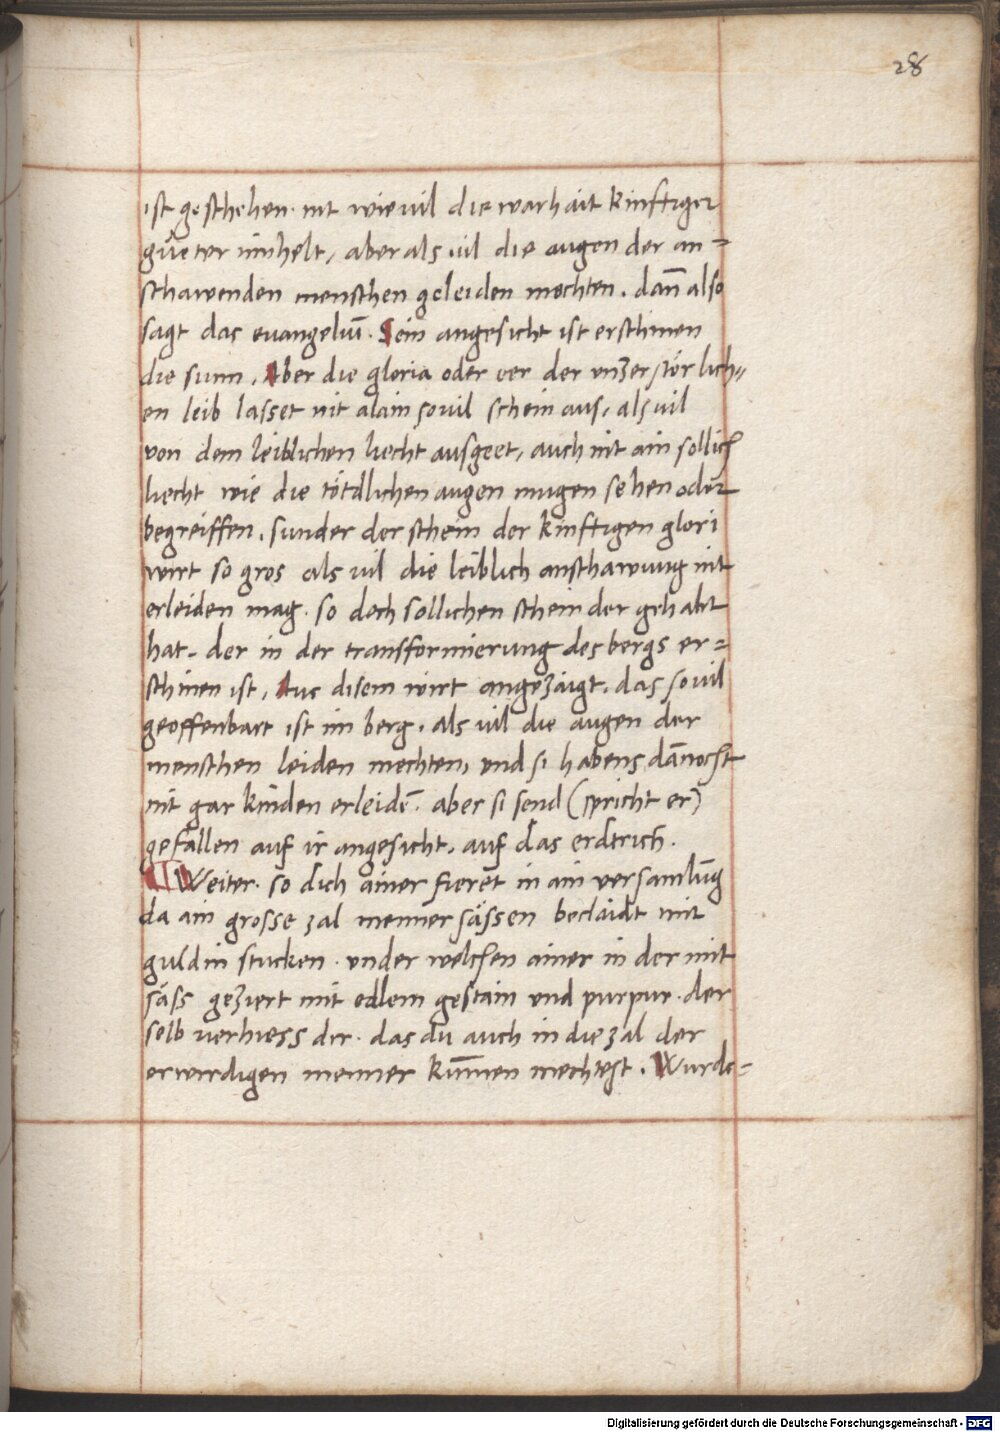 28
ist geschehen. nit wie vil die warhait kinftiger
güeter innhelt, aber als vil die augen der an=
schawenden menschen geleiden mechten. dañ also
sagt das euangeliū. Sein angesicht ist erschinen
die sunn. Aber die gloria oder eer der vnzerstörlich=
en leib lasset nit alain sovil schein aus, als vil
von dem leiblichen liecht ausgeet, auch nit ain sollich
liecht wie die tötdlichen augen mugen sehen oder
begreiffen, sunder der schein der kinftigen glori
wirt so gros als vil die leiblich anschawung nit
erleiden mag. so doch sollichen schein der gehabt
hat, der in der transformierung des bergs er=
schinen ist, Aus disem wirt angezaigt, das sovil
geoffenbart ist im berg, als vil die augen der
menschen leiden mechten, vnd si habens dañocht
nit gar kinden erleidē. aber si send (spricht er)
gefallen auf ir angesicht, auf das erdtrich.
Weiter. so dich ainer fieret in ain versamlūg
da ain grosse zal menner sässen beclaidt mit
guldin stucken. vnder welchen ainer in der mit
säss geziert mit edlem gestain vnd purpur. der
selb verhiess dir. das du auch in die zal der
erwirdigen menner kum̄en mechtest. Wurde=
Digitalisierung gefördert durch die Deutsche Forschungsgemeinschaft - DFG